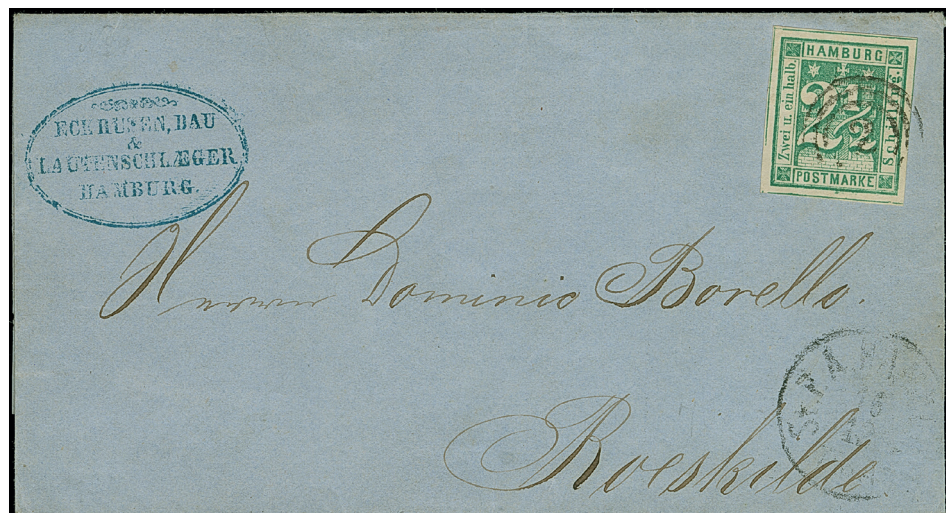 ECKRUSEN, BAU
&
LAUTENSCHLÆGER
HAMBURG.
HAMBURG
Zwei u. ein halb.
2 1/2
POSTMARKE
Herrn Dominio Borello.
Roeskilde